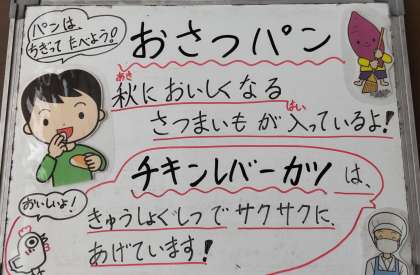 パンは、
ちぎって たべよう!
おさつパン
あき
秋に おいしくなる
はい
さつまいも が 入っているよ!
チキンレバーカツ は、
おいしいよ!
きゅうしょくしつ で サクサクに
あげています!